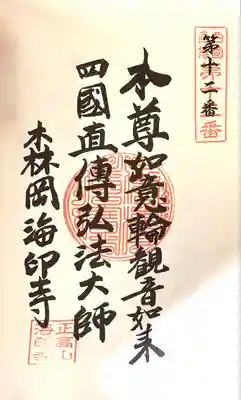 第十二番
本尊如意輪觀音如来
四國直傳弘法大師
森岡海印寺
正高山
海印寺